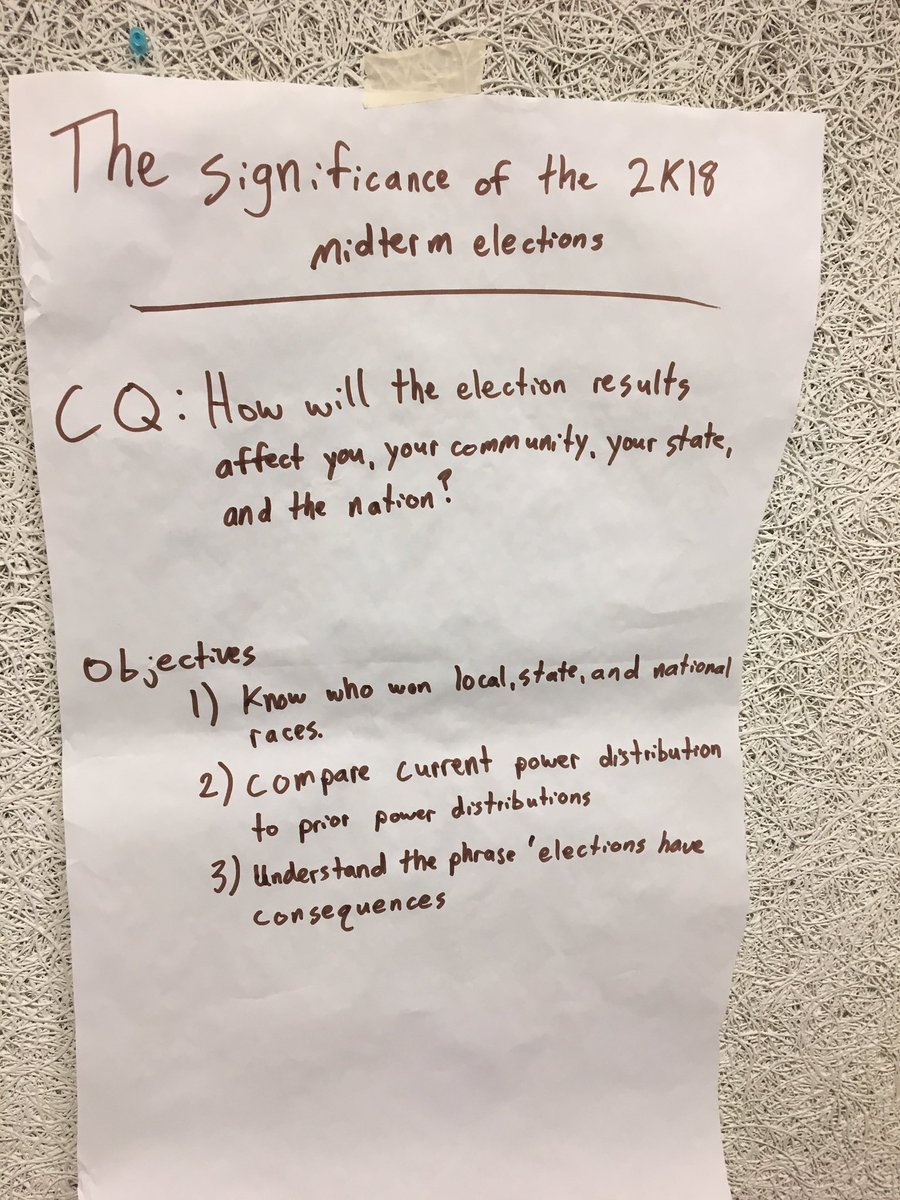 The significance of the 2K18
midterm elections
CQ: How will the election results
affect you, your community, your state,
and the nation?
Objectives
1) Know who won local, state, and national
races.
2) Compare current power distribution
to prior power distributions
3) Understand the phrase 'elections have
consequences